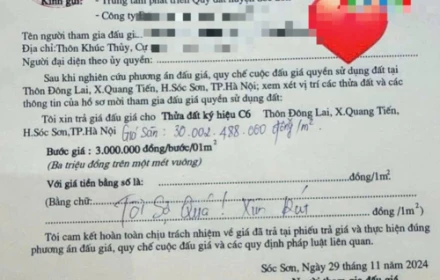 Kính gửi:
- Trung tâm phát triển Quỹ đất huyện
- Công ty
Tên người tham gia đấu gi
Địa chỉ:Thôn Khúc Thủy, Cự
Người đại diện theo ủy quyền:
Sau khi nghiên cứu phương án đấu giá, quy chế cuộc đấu giá quyền sử dụng đất tại
Thôn Đông Lai, X.Quang Tiến, H.Sóc Sơn, TP.Hà Nội; xem xét vị trí các thửa đất và các
thông tin của hồ sơ mời tham gia đấu giá quyền sử dụng đất:
Tôi xin trả giá đấu giá cho Thửa đất ký hiệu C6 Thôn Đông Lai, X.Quang Tiến,
H.Sóc Sơn, TP.Hà Nội Giá Sàn: 30.002.488.000 đồng/m²
Bước giá : 3.000.000 đồng/bước/01m²
(Ba triệu đồng trên một mét vuông)
Với giá tiền bằng số là: đồng/1m²
(Bằng chữ: Tôi Sợ Quá! Xin Rút
đồng /1m²)
Tôi cam kết hoàn toàn chịu trách nhiệm về giá đã trả tại phiếu trả giá và thực hiện đúng
phương án đấu giá, quy chế cuộc đấu giá và các quy định pháp luật liên quan.
Sóc Sơn, Ngày 29 tháng 11 năm 2024